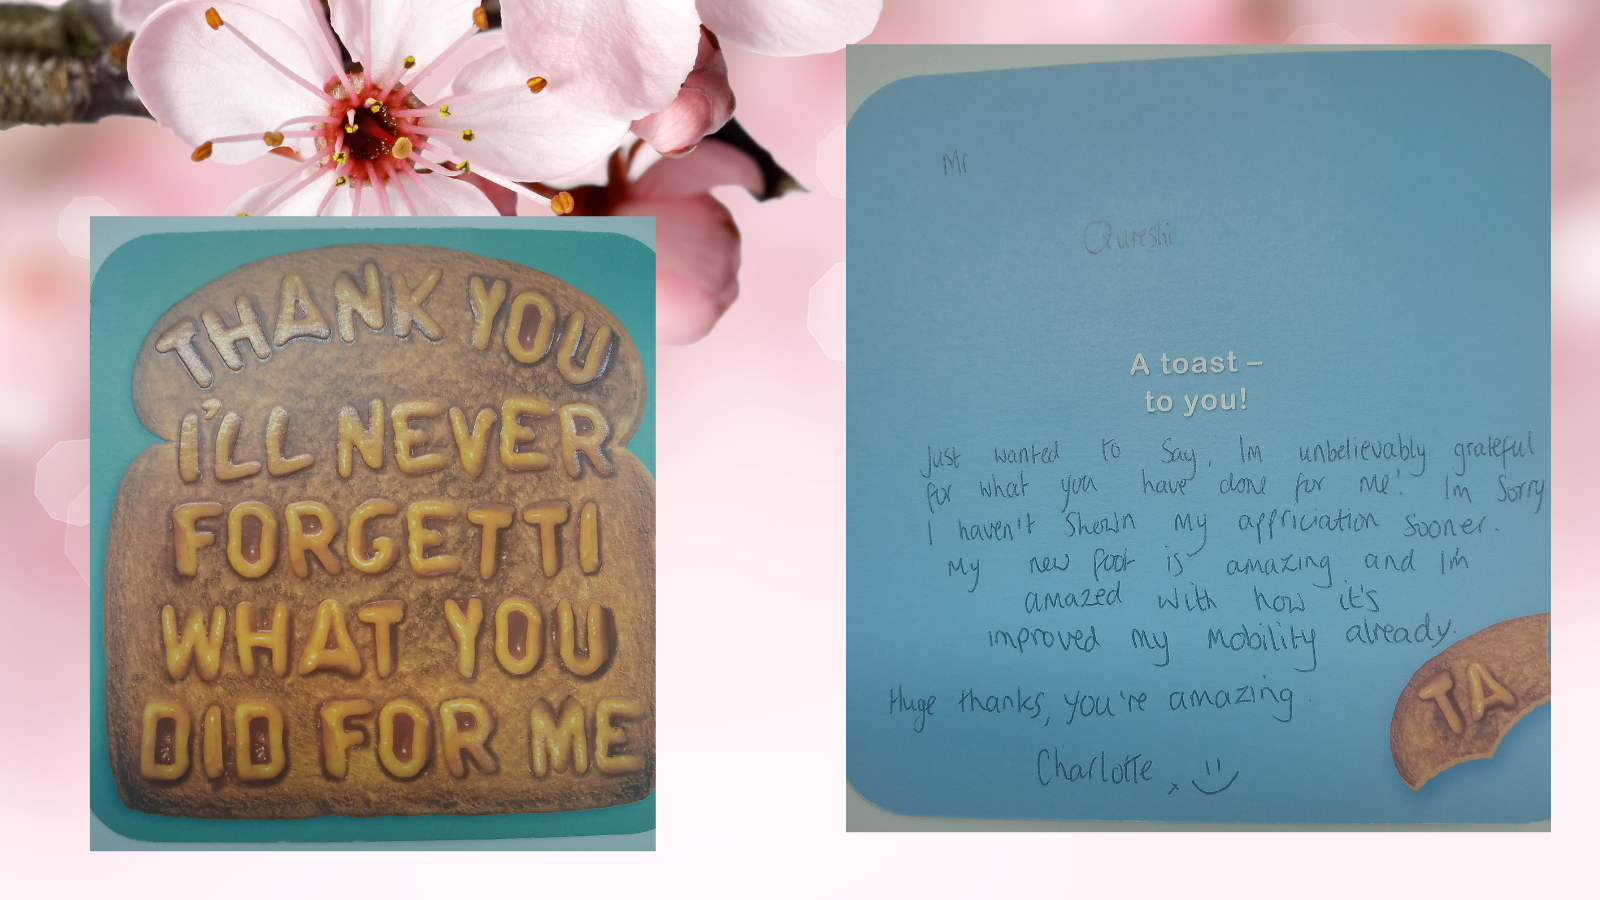 THANK YOU
I'LL NEVER
FORGETTI
WHAT YOU
DID FOR ME
Mr
Qureshi
A toast –
to you!
Just wanted to say, Im unbelievably grateful
for what you have done for me! Im Sorry
I haven't shown my appriciation sooner.
My new foot is amazing and I'm
amazed with how it's
improved my mobility already.
Huge thanks, you're amazing.
Charlotte x
TA